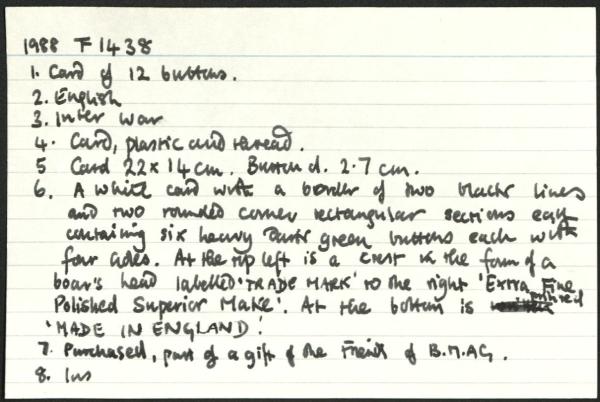 1988 F 1438
1. Card of 12 buttons.
2. English
3. Inter War
4. Card, plastic and thread.
5 Card 22 x 14 cm. Button d. 2.7 cm.
6. A white card with a border of two black lines
and two rounded corner rectangular sections each
containing six heavy dark green buttons each with
four holes. At the top left is a crest in the form of a
boar's head labelled 'TRADE MARK' to the right 'Extra Fine
Polished Superior Make'. At the bottom is printed
'MADE IN ENGLAND'.
7. Purchased, part of a gift of the Friends of B.M.AG.
8. Ins